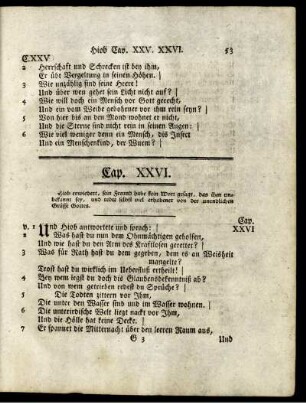 Hiob Cap. XXV. XXVI. 53
C.XXV
2 Herrschaft und Schrecken ist bey ihm,
Er übt Vergeltung in seinen Höhen. |
3 Wie unzählig sind seine Heere!
Und über wen gehet sein Licht nicht auf? |
4 Wie will doch ein Mensch vor Gott gerecht,
Und ein vom Weibe gebohrner vor ihm rein seyn? |
5 Von hier bis an den Mond wohnet er nicht,
Und die Sterne sind nicht rein in seinen Augen: |
6 Wie viel weniger denn ein Mensch, das Insect
Und ein Menschenkind, der Wurm? |
Cap. XXVI.
Hiob erwiedert, sein Freund habe kein Wort gesagt, das ihm unbekannt sey, und redet selbst viel erhabener von der unendlichen Größe Gottes.
Cap.
XXVI
v. 1 Und Hiob antwortete und sprach: |
2 Was hast du nun dem Ohnmächtigen geholfen,
Und wie hast du den Arm des Kraftlosen gerettet? |
3 Was für Rath hast du dem gegeben, dem es an Weisheit
mangelte?
Trost hast du wirklich im Ueberfluß ertheilt! |
4 Bey wem legst du doch die Glaubensbekenntniß ab?
Und von wem getrieben redest du Sprüche? |
5 Die Todten zittern vor Ihm,
Die unter den Wasser sind und im Wasser wohnen. |
6 Die unterirdische Welt liegt nackt vor Ihm,
Und die Hölle hat keine Decke. |
7 Er spannet die Mitternacht über den leeren Raum aus,
G 3 Und